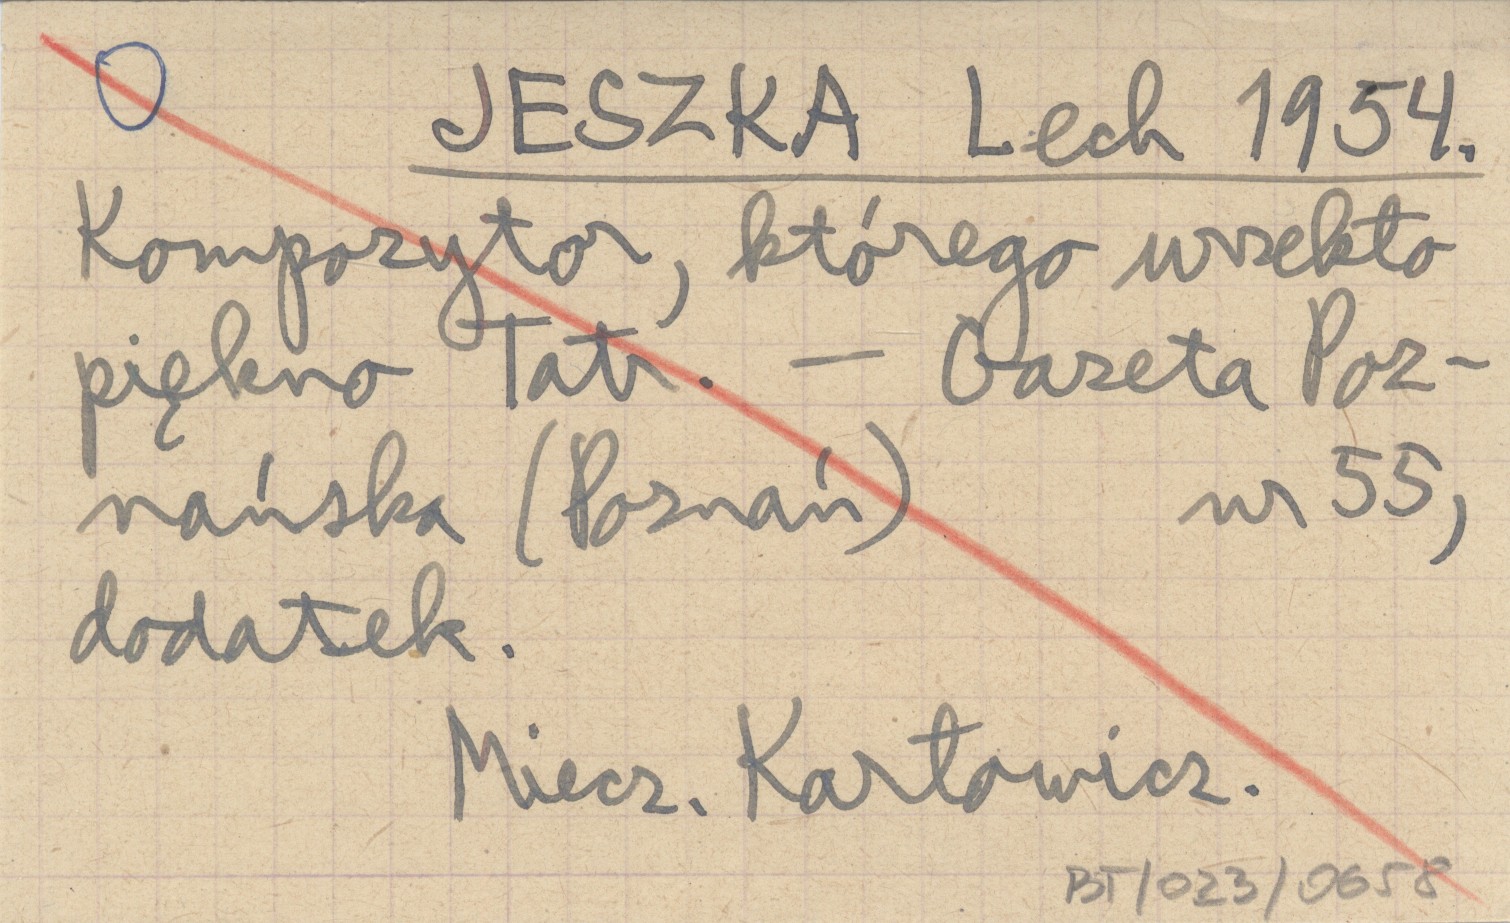 JESZKA Lech 1954.
Kompozytor, którego urzekło
piękno Tatr. — Gazeta Poz-
nańska (Poznań) nr 55,
dodatek.
Miecz. Karłowicz.
BT/023/0658